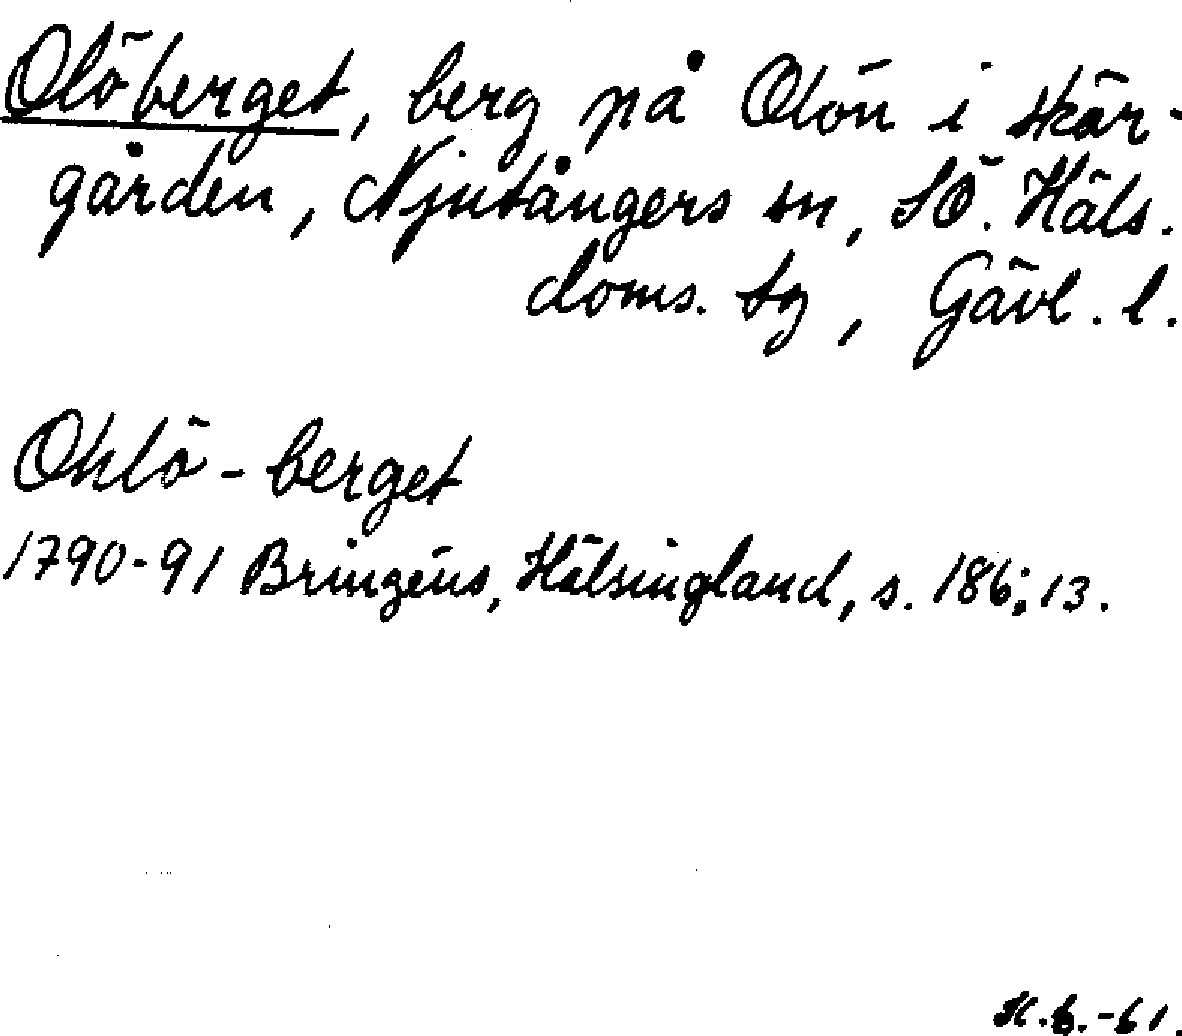 Olöberget, berg på Olön i skär-
gården, Njutångers sn, SÖ. Häls.
doms. sg, Gävl. l.
Ohlö-berget
1790-91 Bringéus, Hälsingland, s. 186; 13.
-61.